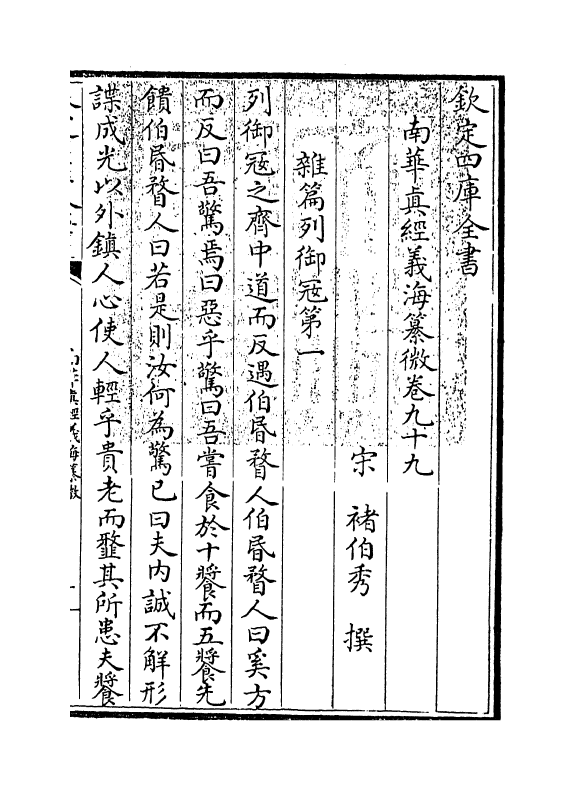 欽定四庫全書
南華眞經義海纂微卷九十九
宋 褚伯秀 撰
雜篇列御冦第一
列御冦之齊中道而反遇伯昬瞀人伯昬瞀人曰奚方
而反曰吾驚焉曰惡乎驚曰吾嘗食於十𩞄而五𩞄先
饋伯昬瞀人曰若是則汝何為驚已曰夫内誠不解形
諜成光以外鎮人心使人輕乎貴老而䪠其所患夫𩞄
南華眞經義海纂微